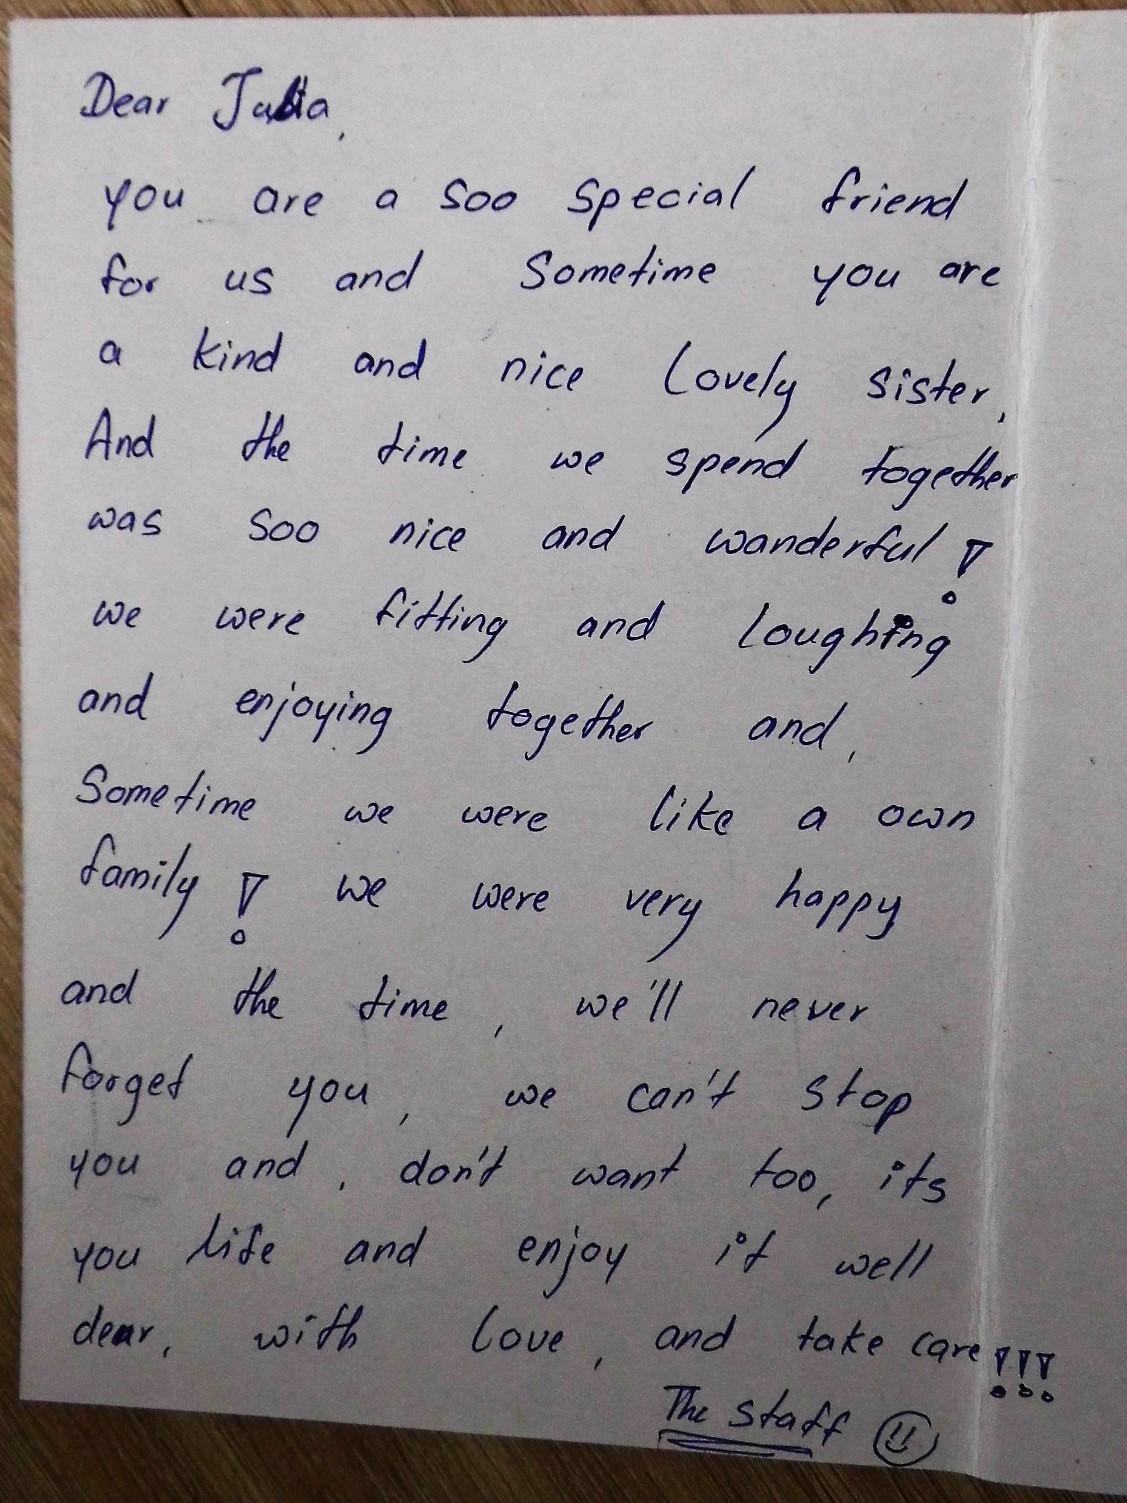 Dear Julia,
you are a soo special friend
for us and Sometime you are
a kind and nice Lovely sister,
And the time we spend together
was soo nice and wanderful!
we were fitting and loughing
and enjoying together and,
Sometime we were like a own
family! we were very happy
and the time, we'll never
forget you, we can't stop
you and, don't want too, its
you life and enjoy it well
dear, with love, and take care!!!
The Staff